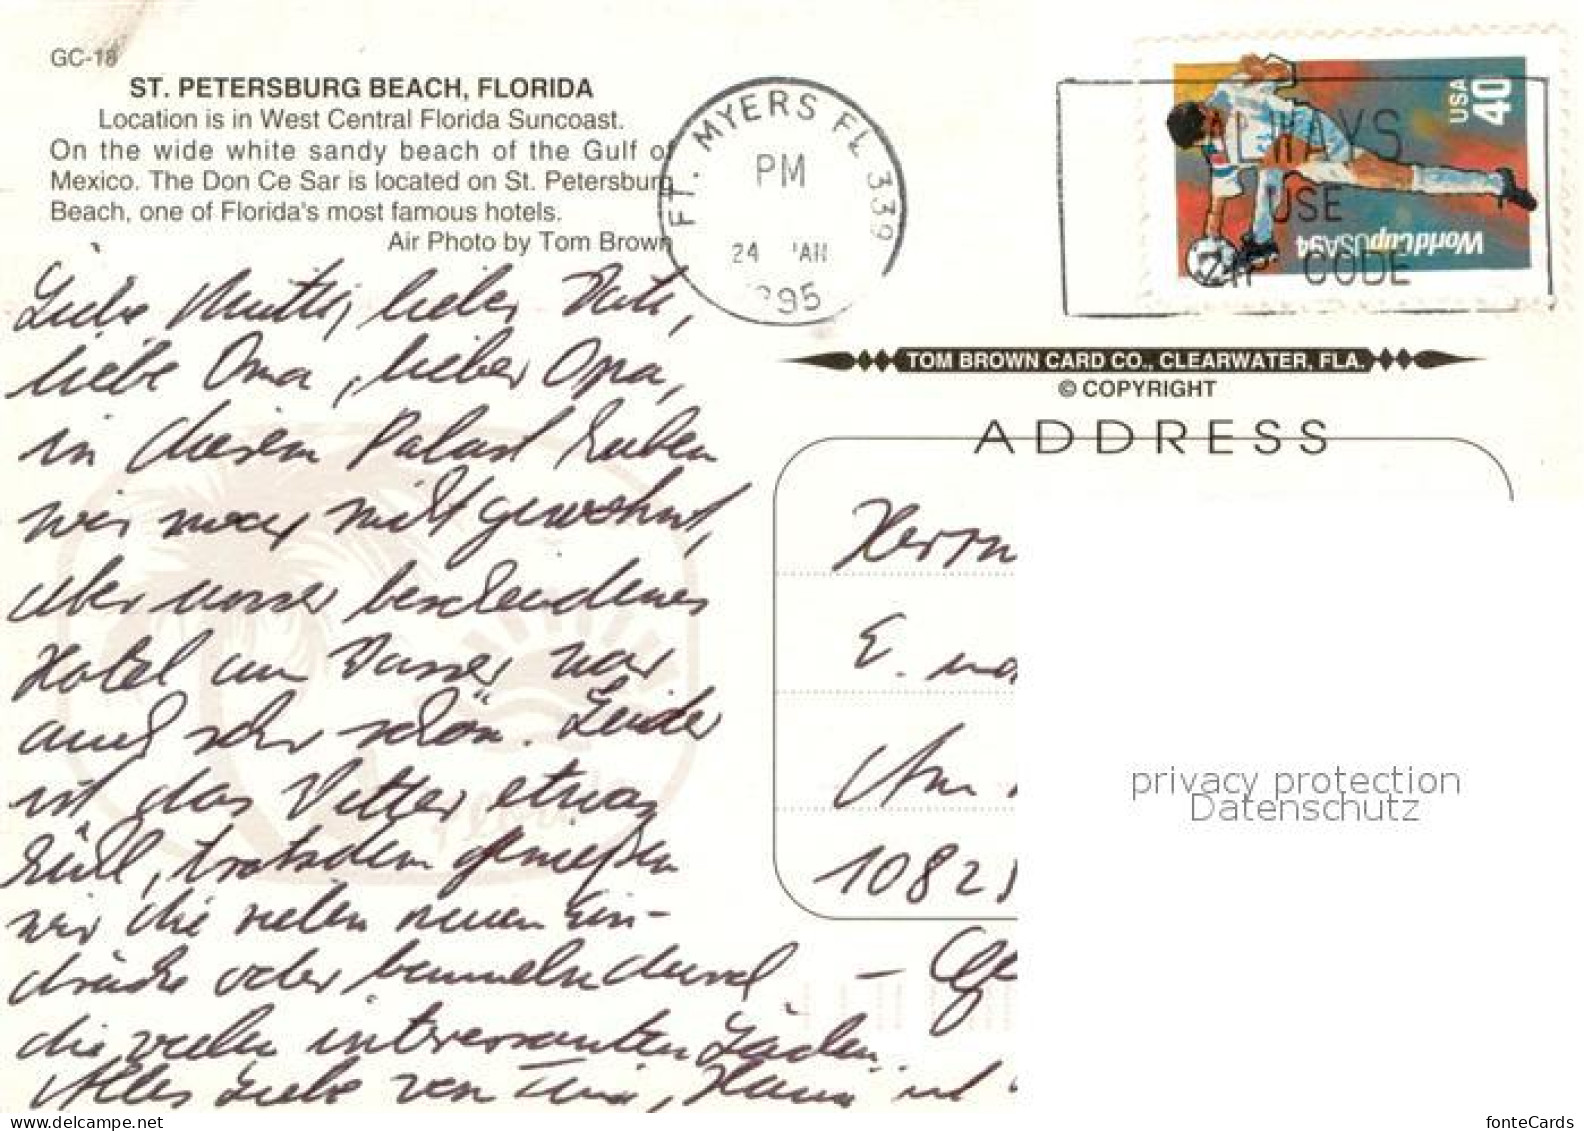 GC-18
ST. PETERSBURG BEACH, FLORIDA
Location is in West Central Florida Suncoast.
On the wide white sandy beach of the Gulf of
Mexico. The Don Ce Sar is located on St. Petersburg
Beach, one of Florida's most famous hotels.
Air Photo by Tom Brown
FT. MYERS FL 339
PM
24
995
ALWAYS
USE
ZIP CODE
USA
40
WorldCupUSA94
TOM BROWN CARD CO., CLEARWATER, FLA.
© COPYRIGHT
ADDRESS
Liebe Mutti, lieber
liebe Oma, lieber Opa,
in diesem Palast haben
wir zwar nicht gewohnt,
aber unser bescheidenes
Hotel am Wasser war
auch sehr schön. Leider
ist das Wetter etwas
kühl, trotzdem genießen
wir die vielen neuen Ein-
drücke oder bummeln durch
die vielen interessanten Läden.
Alles Liebe von
Herrn
E.
Am
1082
privacy protection
Datenschutz
fonteCards